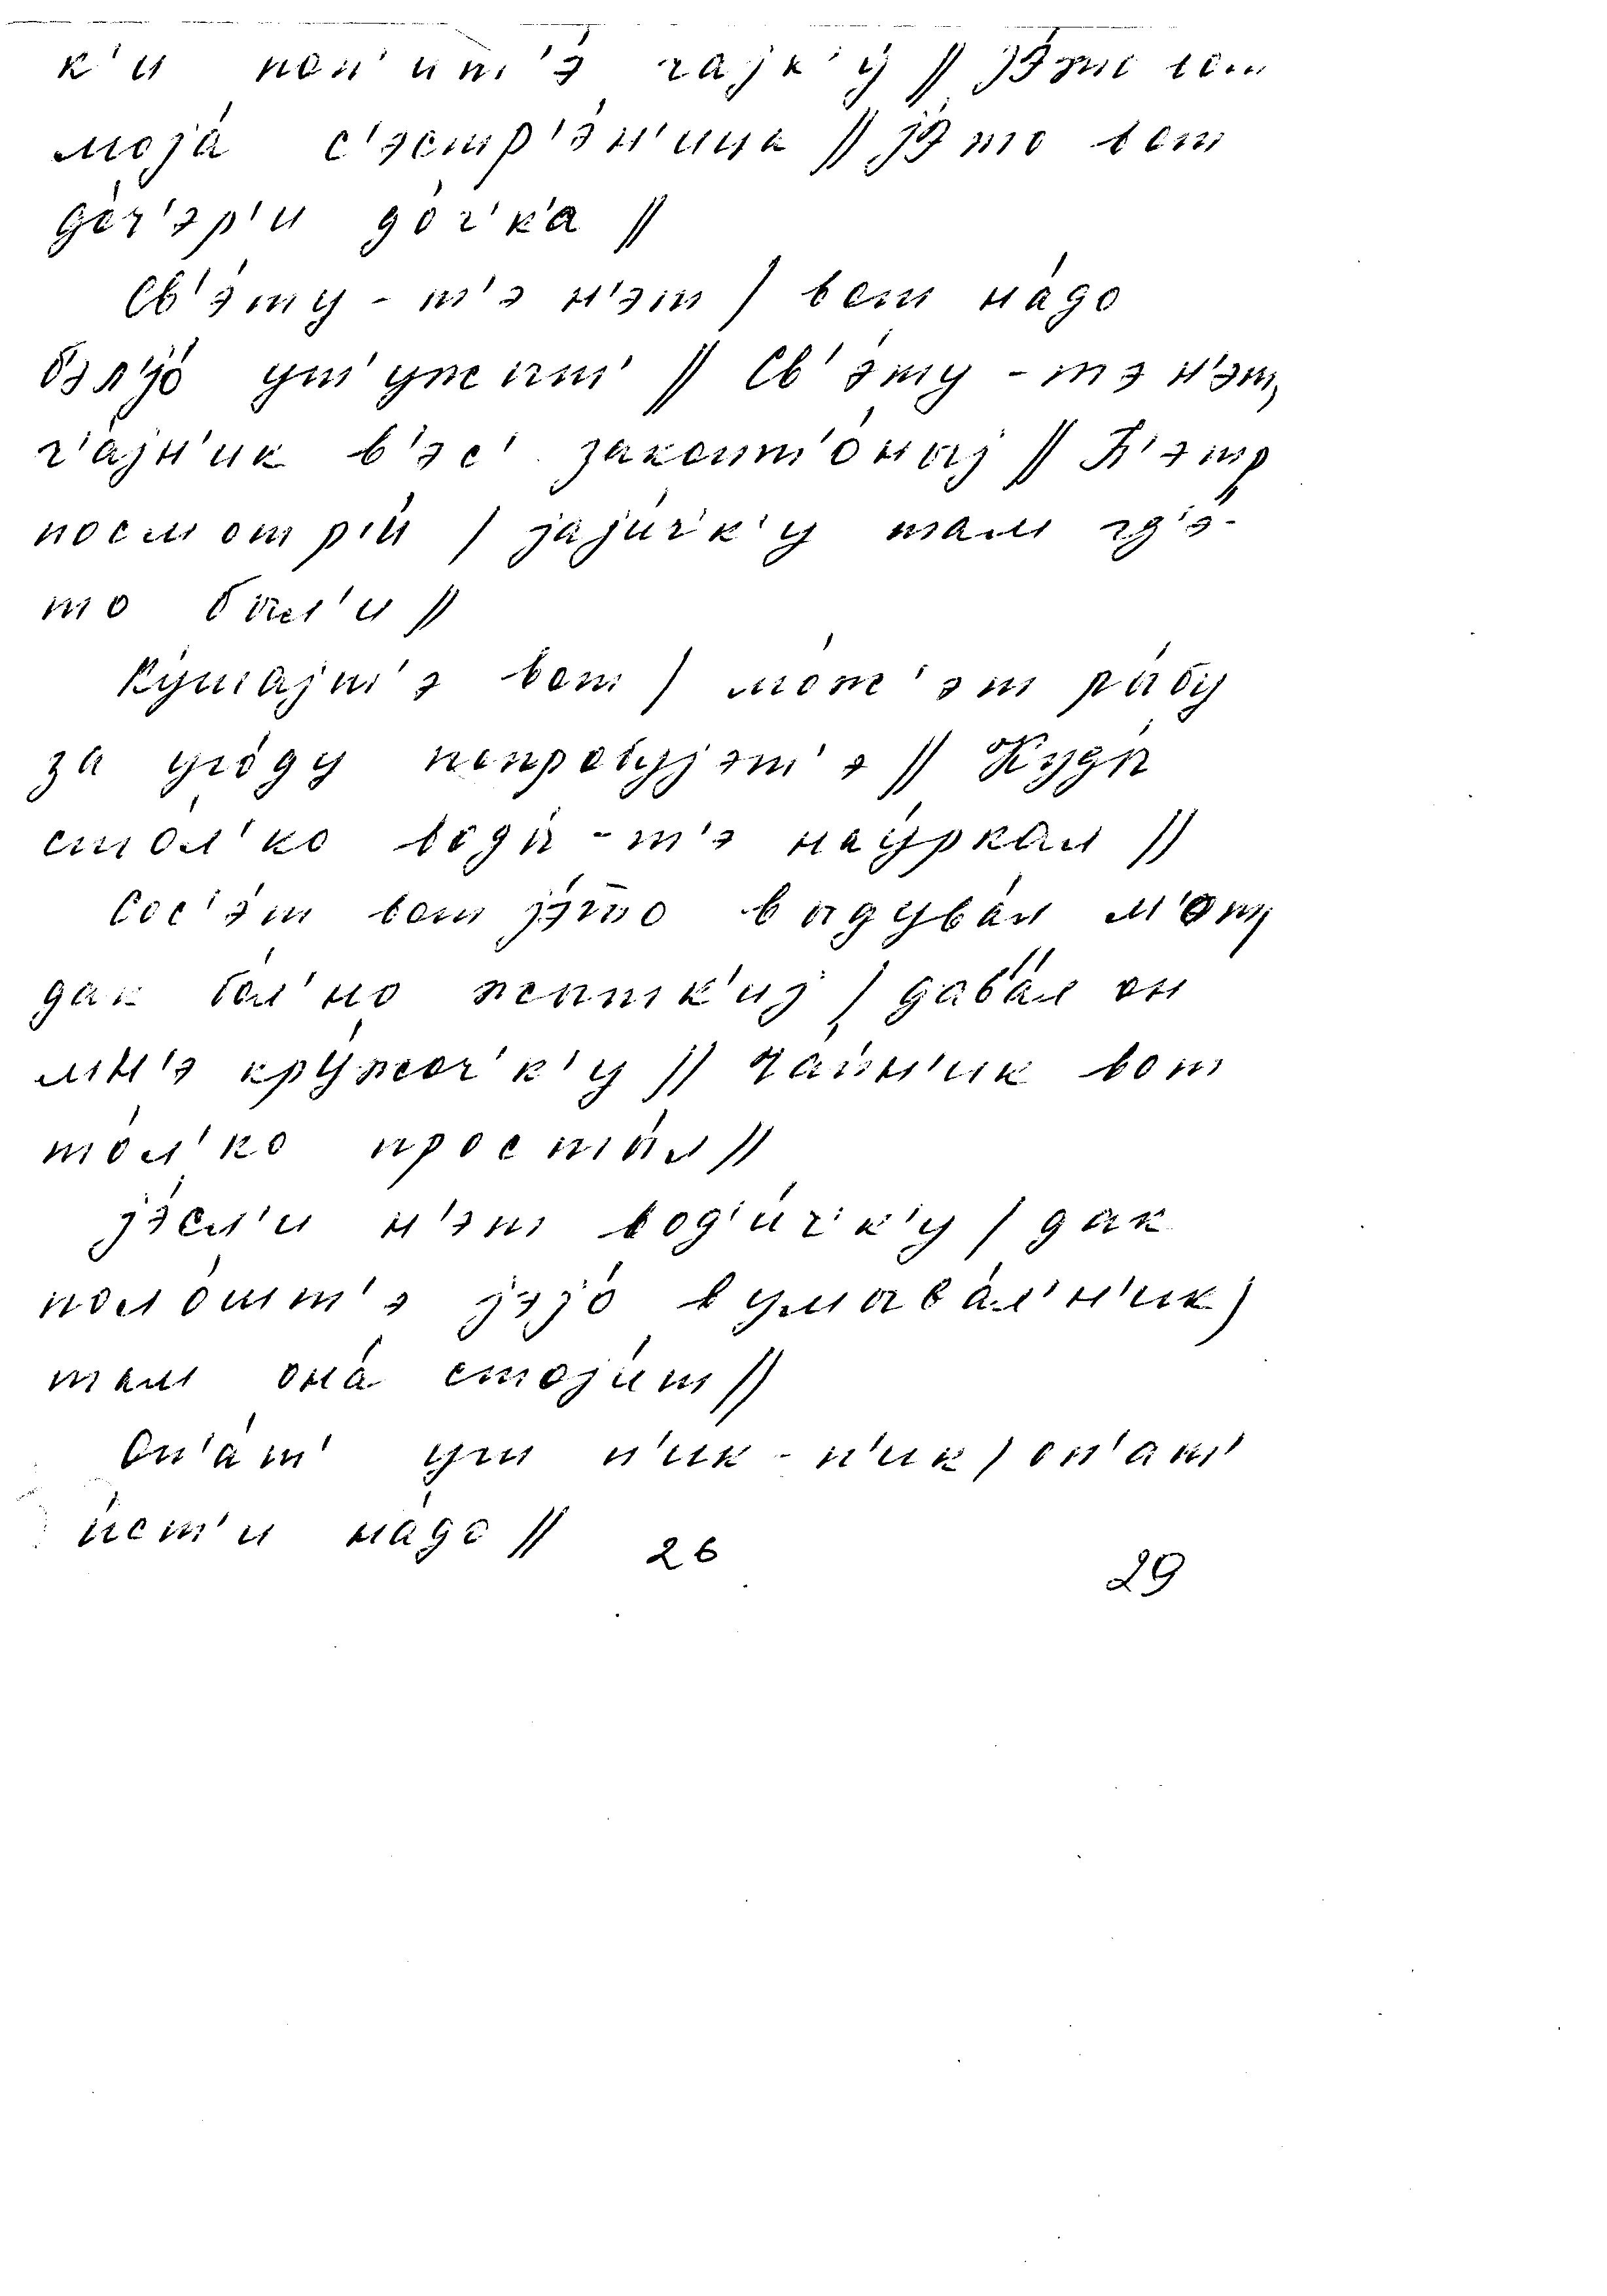 к'и поп'ит'э́ чајк'у́ // јэ́то вот
моја́ с'эстр'э́н'ица // јэ́то вот
до́ч'эр'и до́ч'к'а //
Св'э́ту - т'э н'эт / вот на́до
бэл'јо́ ут'ужыт' // Св'э́ту - тэ н'эт,
ч'а́јн'ик в'эс' закопт'о́ныј // П'этр
посмотр'и́ / јаји́ч'к'у там гд'э́-
то был'и //
Ку́шајт'э вот / мо́ж'эт ры́бу
за уго́ду попробујэт'э // Куды́
сто́л'ко воды́ - т'э нау́ркал //
Сос'э́т вот јэ́то выдува́л м'от,
дак бо́л'но жытк'иј / дава́л он
мн'э кру́жоч'к'у // Ча́йн'ик вот
то́л'ко просты́л //
јэ́сл'и н'эт вод'и́ч'к'у / дак
поло́шт'э јэјо́ в умыва́л'н'ик /
там она́ стоји́т //
Оп'а́т' уш п'ик - н'ик / оп'ат'
и́ст'и на́до //
26
29